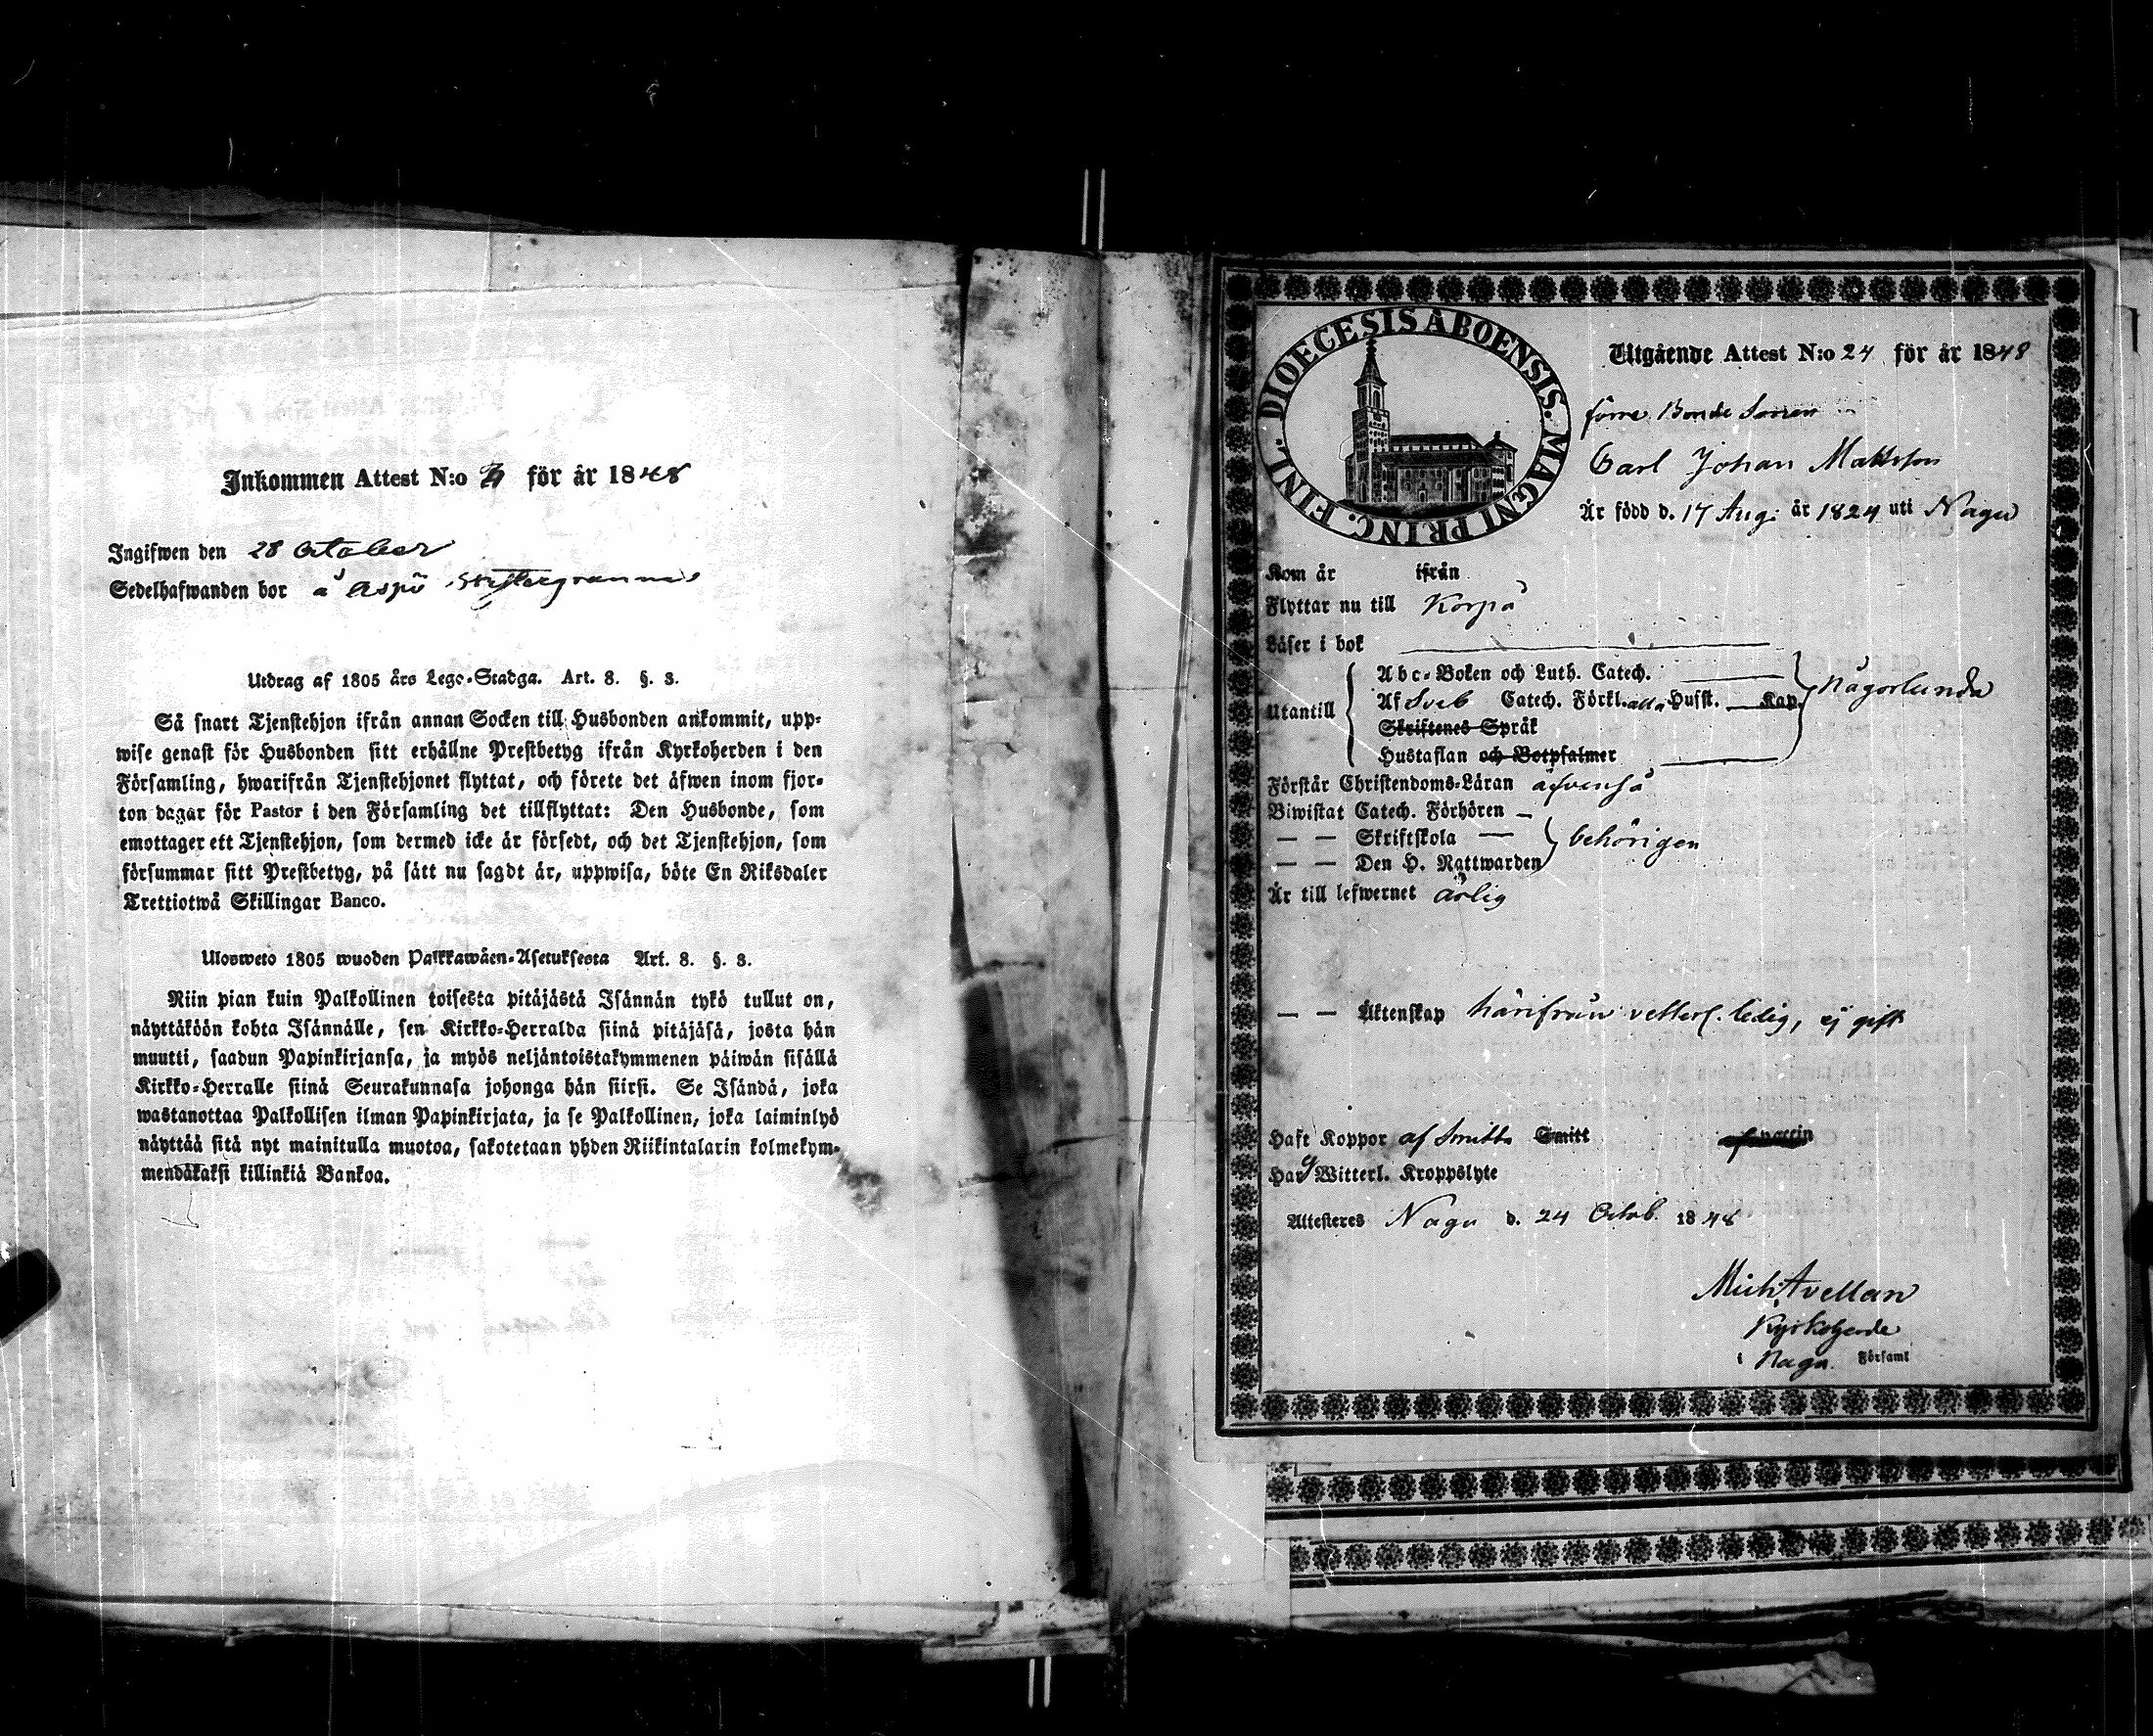 Inkommen Attest N:o för år 1848
Ingifwen den 28 October
Sedelhafwanden bor å Aspö
Utdrag af 1805 års Lego-Stadga. Art. 8. §. 3.
Så snart Tjenstehjon ifrån annan Socken till Husbonden ankommit, upp-
wise genast för Husbonden sitt erhållne Prestbetyg ifrån Kyrkoherden i den
Församling, hwarifrån Tjenstehjonet flyttat, och förete det äfwen inom fjor-
ton dagar för Pastor i den Församling det tillflyttat: Den Husbonde, som
emottager ett Tjenstehjon, som dermed icke är försedt, och det Tjenstehjon, som
försummar sitt Prestbetyg, på sätt nu sagdt är, uppwisa, böte En Riksdaler
Trettiotwå Skillingar Banco.
Ulosweto 1805 wuoden Palkkawäen-Asetuksesta Art. 8. §. 3.
Niin pian kuin Palkollinen toisesta pitäjästä Isännän tykö tullut on,
näyttäköön kohta Isännälle, sen Kirkko-Herralda siinä pitäjäsä, josta hän
muutti, saadun Papinkirjansa, ja myös neljäntoistakymmenen päiwän sisällä
Kirkko-Herralle siinä Seurakunnasa johonga hän siirsi. Se Isändä, joka
wastanottaa Palkollisen ilman Papinkirjata, ja se Palkollinen, joka laiminlyö
näyttää sitä nyt mainitulla muotoa, sakotetaan yhden Riikintalarin kolmekym-
mendäkaksi killinkiä Bankoa.
DIOECESIS ABOENSIS. MAGNI PRINC. FINL.
Utgående Attest N:o 24 för år 1848
förre Bonde Sonen
Carl Johan Mattsson
Är född d. 17 Aug: år 1824 uti Nagu
Kom år ifrån
Flyttar nu till Korpo
Läser i bok
Utantill
Abc-Boken och Luth. Catech.
Af Sveb Catech. Förkl. alla Husst. Kap.
någorlunda
Skriftenes Språk
Hustaflan och Botpsalmer
Förstår Christendoms-Läran äfvenså
Biwistat Catech. Förhören
— — Skriftskola —
behörigen
— — Den H. Nattwarden
Är till lefwernet ärlig
— — Äktenskap härifrån vetterl. ledig, ej gift
Haft Koppor af Smitta Smitt af vaccin
Har ej Witterl. Kroppslyte
Attesteres Nagu d. 24 Octob. 1848
Mich Avellan
Kyrkoherde
i Nagu. Församl